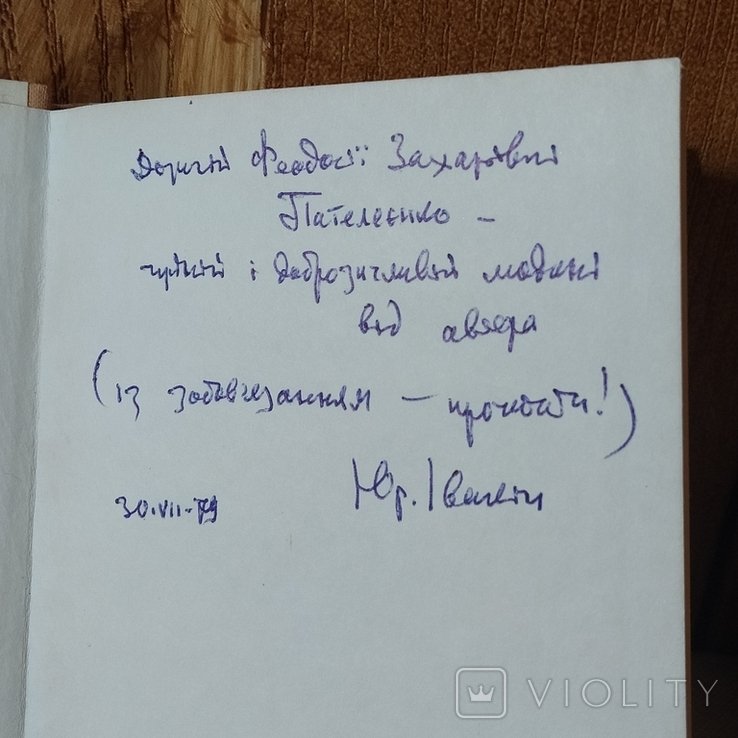 Дорогій Феодосії Захарівні
Пателєєнко –
чуйній і доброзичливій людині
від автора
(із зобов'язанням – прочитати!)
Юр. Івакін
30.VII.79
VIOLITY